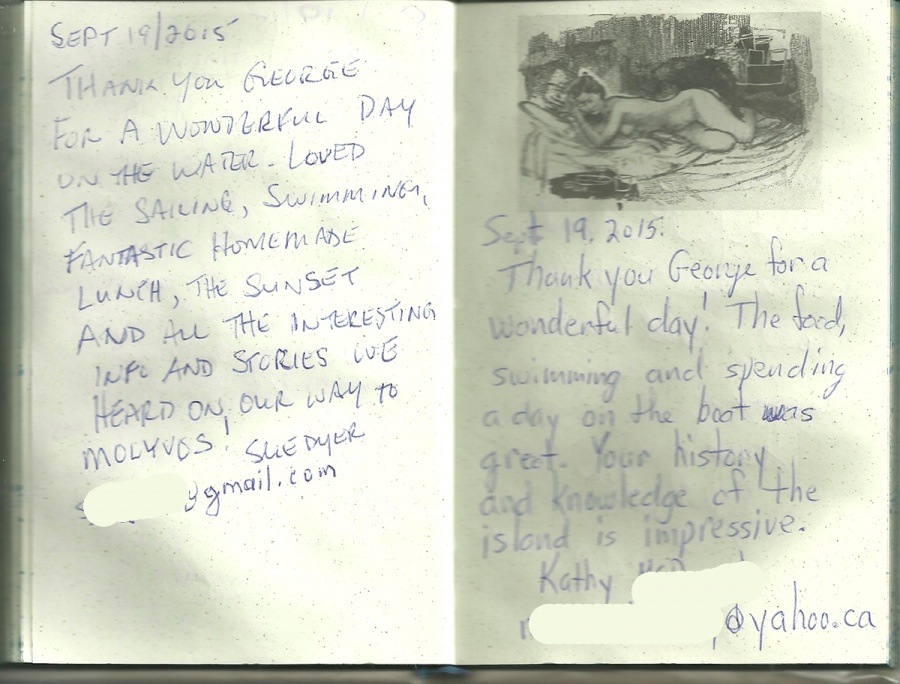 SEPT 19/2015
THANK YOU GEORGE
FOR A WONDERFUL DAY
ON THE WATER. LOVED
THE SAILING, SWIMMING,
FANTASTIC HOMEMADE
LUNCH, THE SUNSET
AND ALL THE INTERESTING
INFO AND STORIES WE
HEARD ON OUR WAY to
MOLYVOS! SUE DYER
@gmail.com
Sept 19, 2015.
Thank you George for a
wonderful day! The food,
swimming and spending
a day on the boat was
great. Your history
and knowledge of the
island is impressive.
Kathy
@yahoo.ca